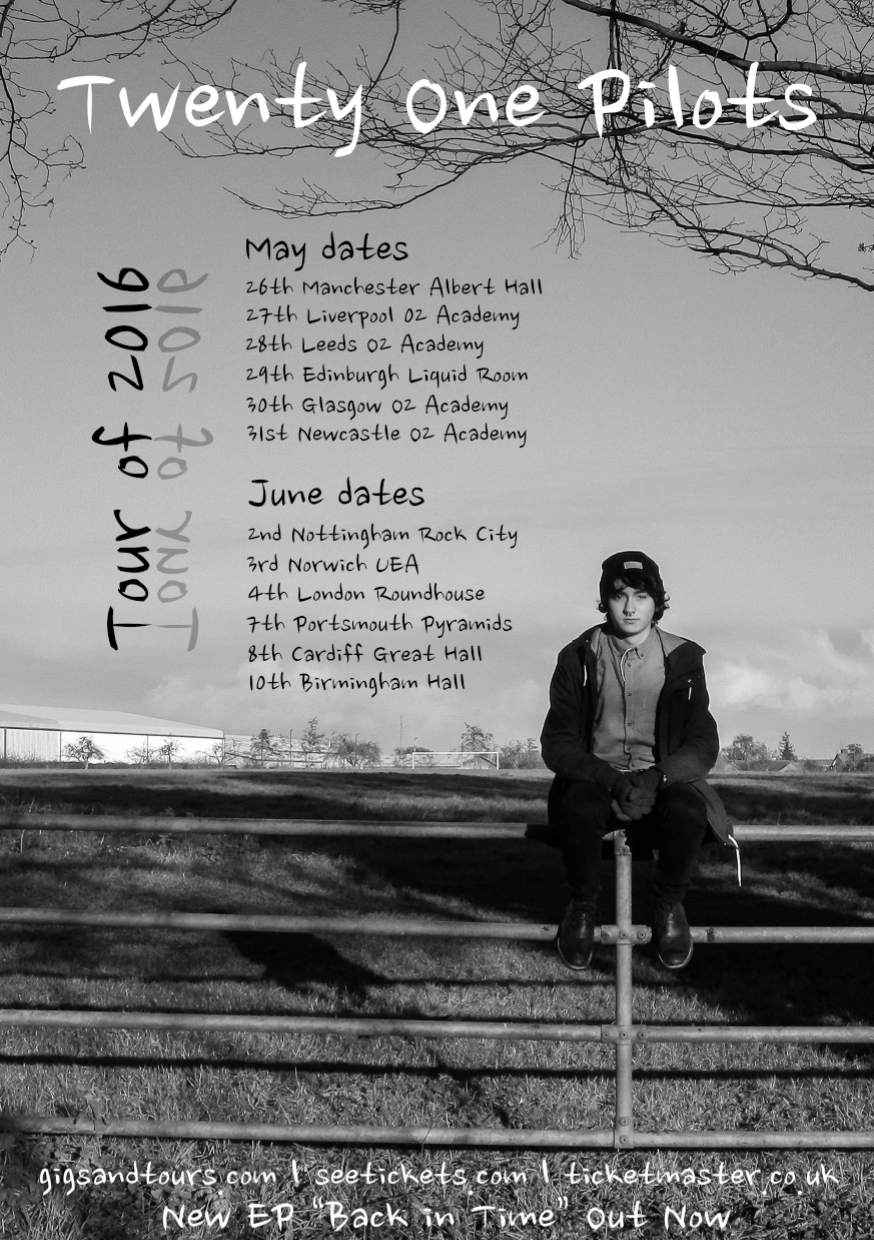 Twenty One Pilots
Tour of 2016
May dates
26th Manchester Albert Hall
27th Liverpool O2 Academy
28th Leeds O2 Academy
29th Edinburgh Liquid Room
30th Glasgow O2 Academy
31st Newcastle O2 Academy
June dates
2nd Nottingham Rock City
3rd Norwich UEA
4th London Roundhouse
7th Portsmouth Pyramids
8th Cardiff Great Hall
10th Birmingham Hall
gigsandtours.com | seetickets.com | ticketmaster.co.uk
New EP "Back in Time" Out Now